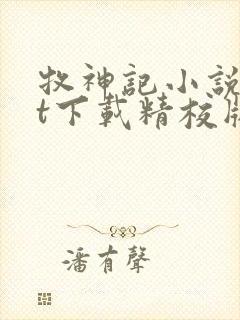 牧神記小說
t下載精校
潘有聲